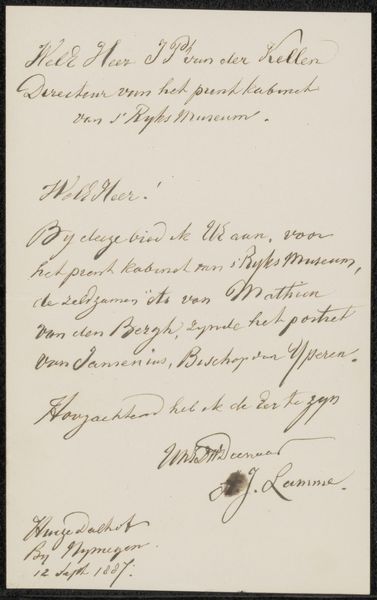 WelE Heer J Ph van der Kellen
Directeur van het prent kabinet
van s' Ryks Museum.
WelE Heer!
By deeze bied ik UE aan, voor
het prent kabinet van s' Ryks Museum,
de zeldzamen ets van Mathieu
van den Bergh, zynde het portret
van Jansenius, Bisschop van Yperen.
Hoogachtend heb ik de Eer te zyn
Dienaar
A J. Lamme.
Huize Dalhof
By Nymegen.
12 Sept 1887.